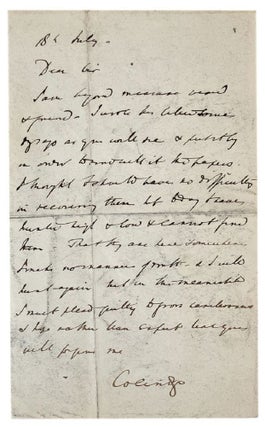 18th July.
Dear Sir
I am beyond measure vexed
& grieved. I wrote the letter some
days ago
in order to the papers.
I thought I should have no difficulty
in recovering them but I have
hunted high & low & cannot find
them That they are here somewhere
I make no manner of doubt & I will
hunt again but in the meanwhile
I must plead guilty to gross carelessness
& hope rather than expect that you
will forgive me
Coleridge